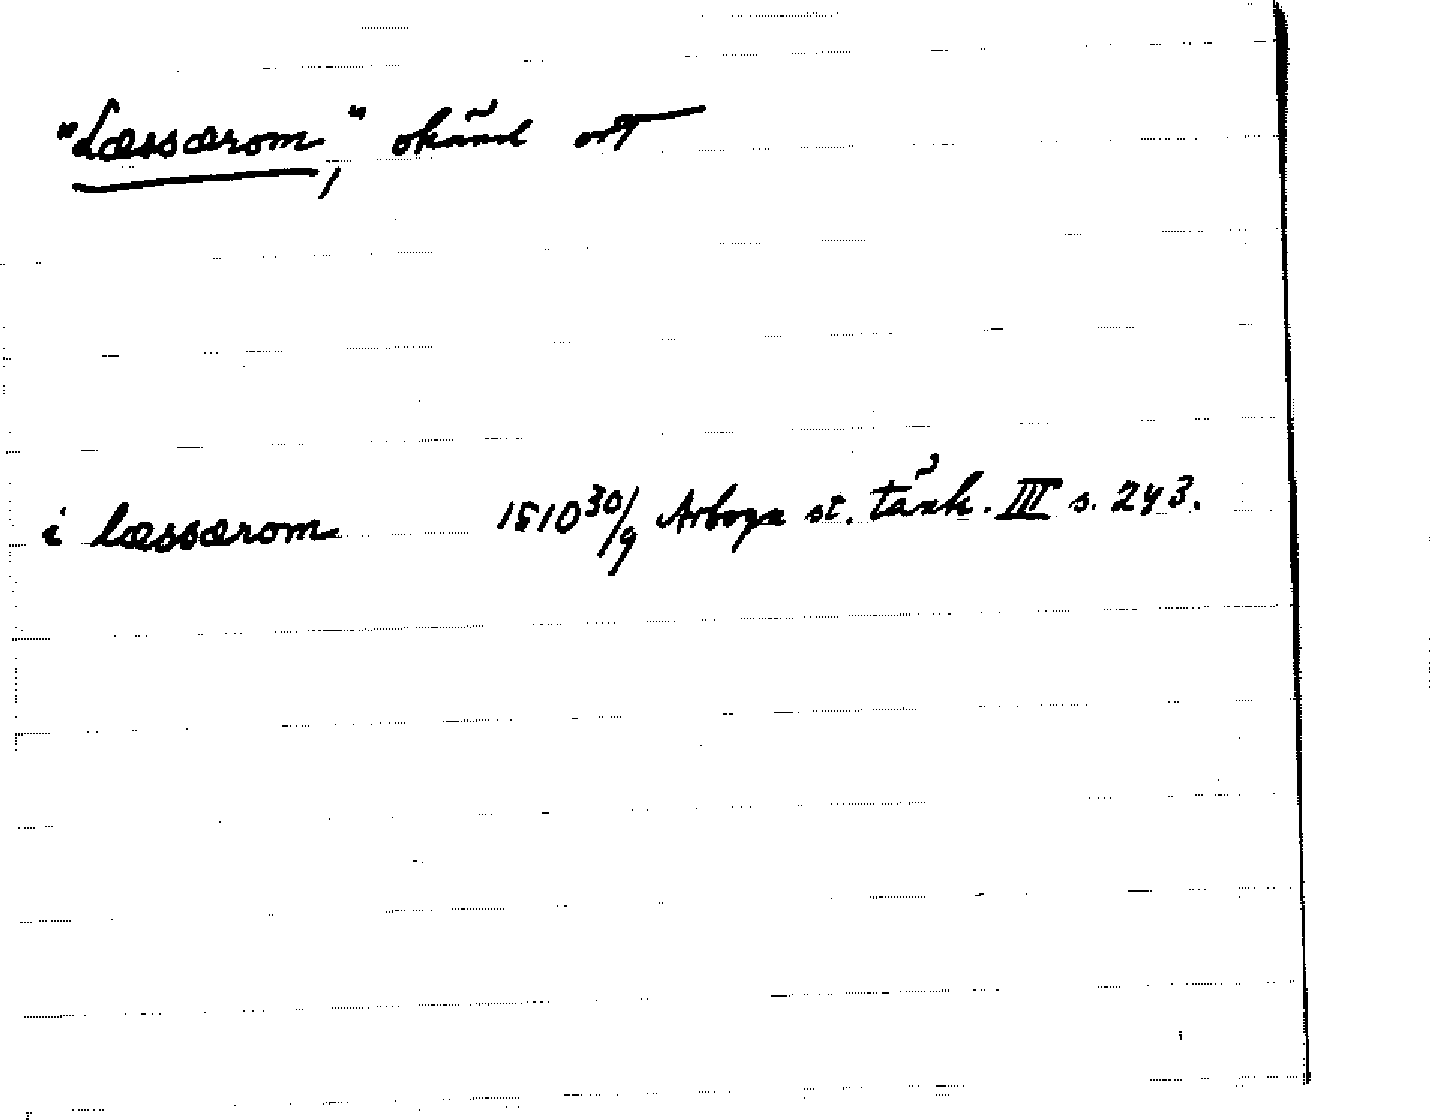 "Læssærom," okänd ort
i læssærom 1510 30/9 Arboga st. tänk. III s. 243.